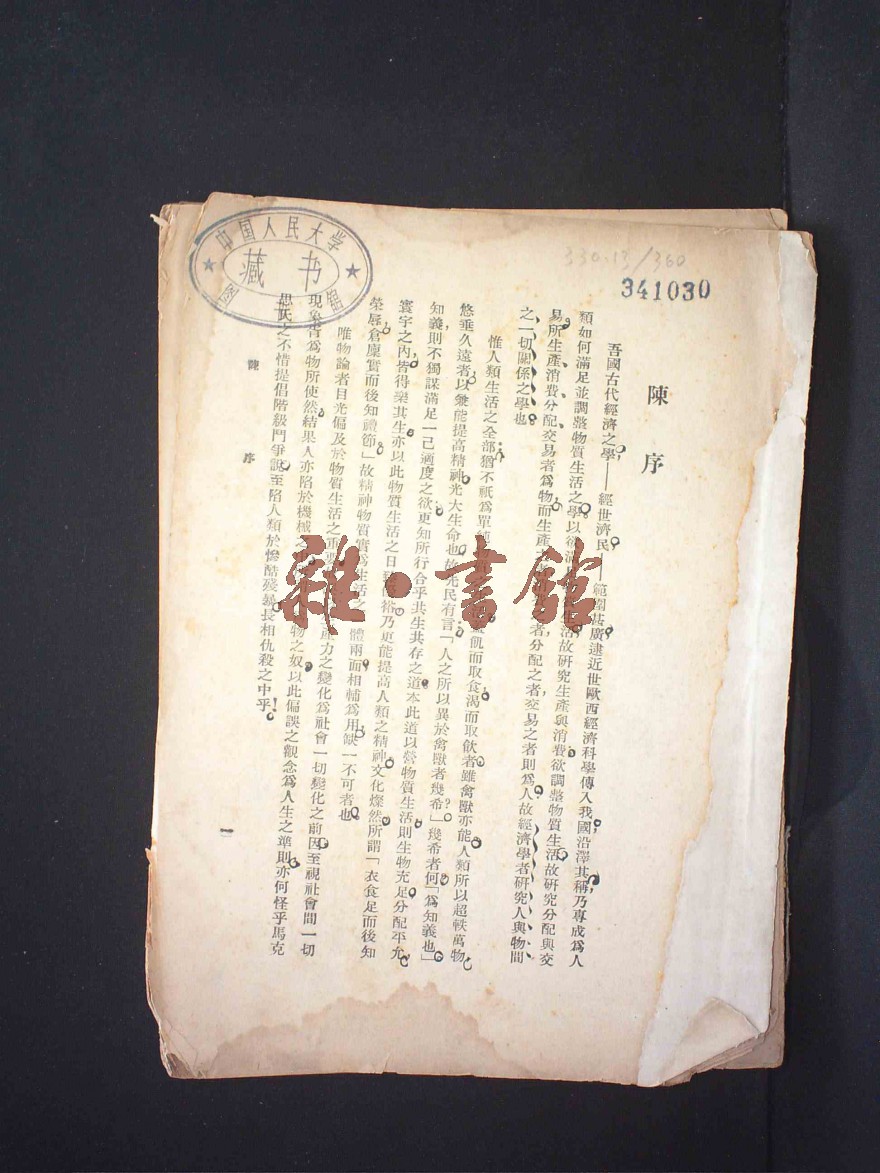 中国人民大学
藏书
图 館
330.13/360
341030
陳序
吾國古代經濟之學——經世濟民——範圍甚廣逮近世歐西經濟科學傳入我國沿澤其稱乃專成為人
類如何滿足並調整物質生活之學以欲滿 生活故研究生產與消費欲調整物質生活故研究分配與交
易所生產消費分配交易者為物而生產之 者分配之者交易之者則為人故經濟學者研究人與物間
之一切關係之學也
惟人類生活之全部猶不祇為單純 飢而取食渴而取飲者雖禽獸亦能人類所以超軼萬物
悠垂久遠者以兼能提高精神光大生命也故先民有言「人之所以異於禽獸者幾希」幾希者何「為知義也」
知義則不獨謀滿足一己適度之欲更知所行合乎共生共存之道本此道以營物質生活則生物充足分配平允
寰宇之內皆得樂其生亦以此物質生活之日 裕乃更能提高人類之精神文化燦然所謂「衣食足而後知
榮辱倉廩實而後知禮節」故精神物質實為生活之 體兩面相輔為用缺一不可者也
唯物論者目光偏及於物質生活之重要 產力之變化為社會一切變化之前因至視社會間一切
現象皆為物所使然結果人亦陷於機械之 物之奴以此偏誤之觀念為人生之準則亦何怪乎馬克
思氏之不惜提倡階級鬥爭說至陷人類於慘酷殘暴長相仇殺之中乎！
陳序
一
雜·書館